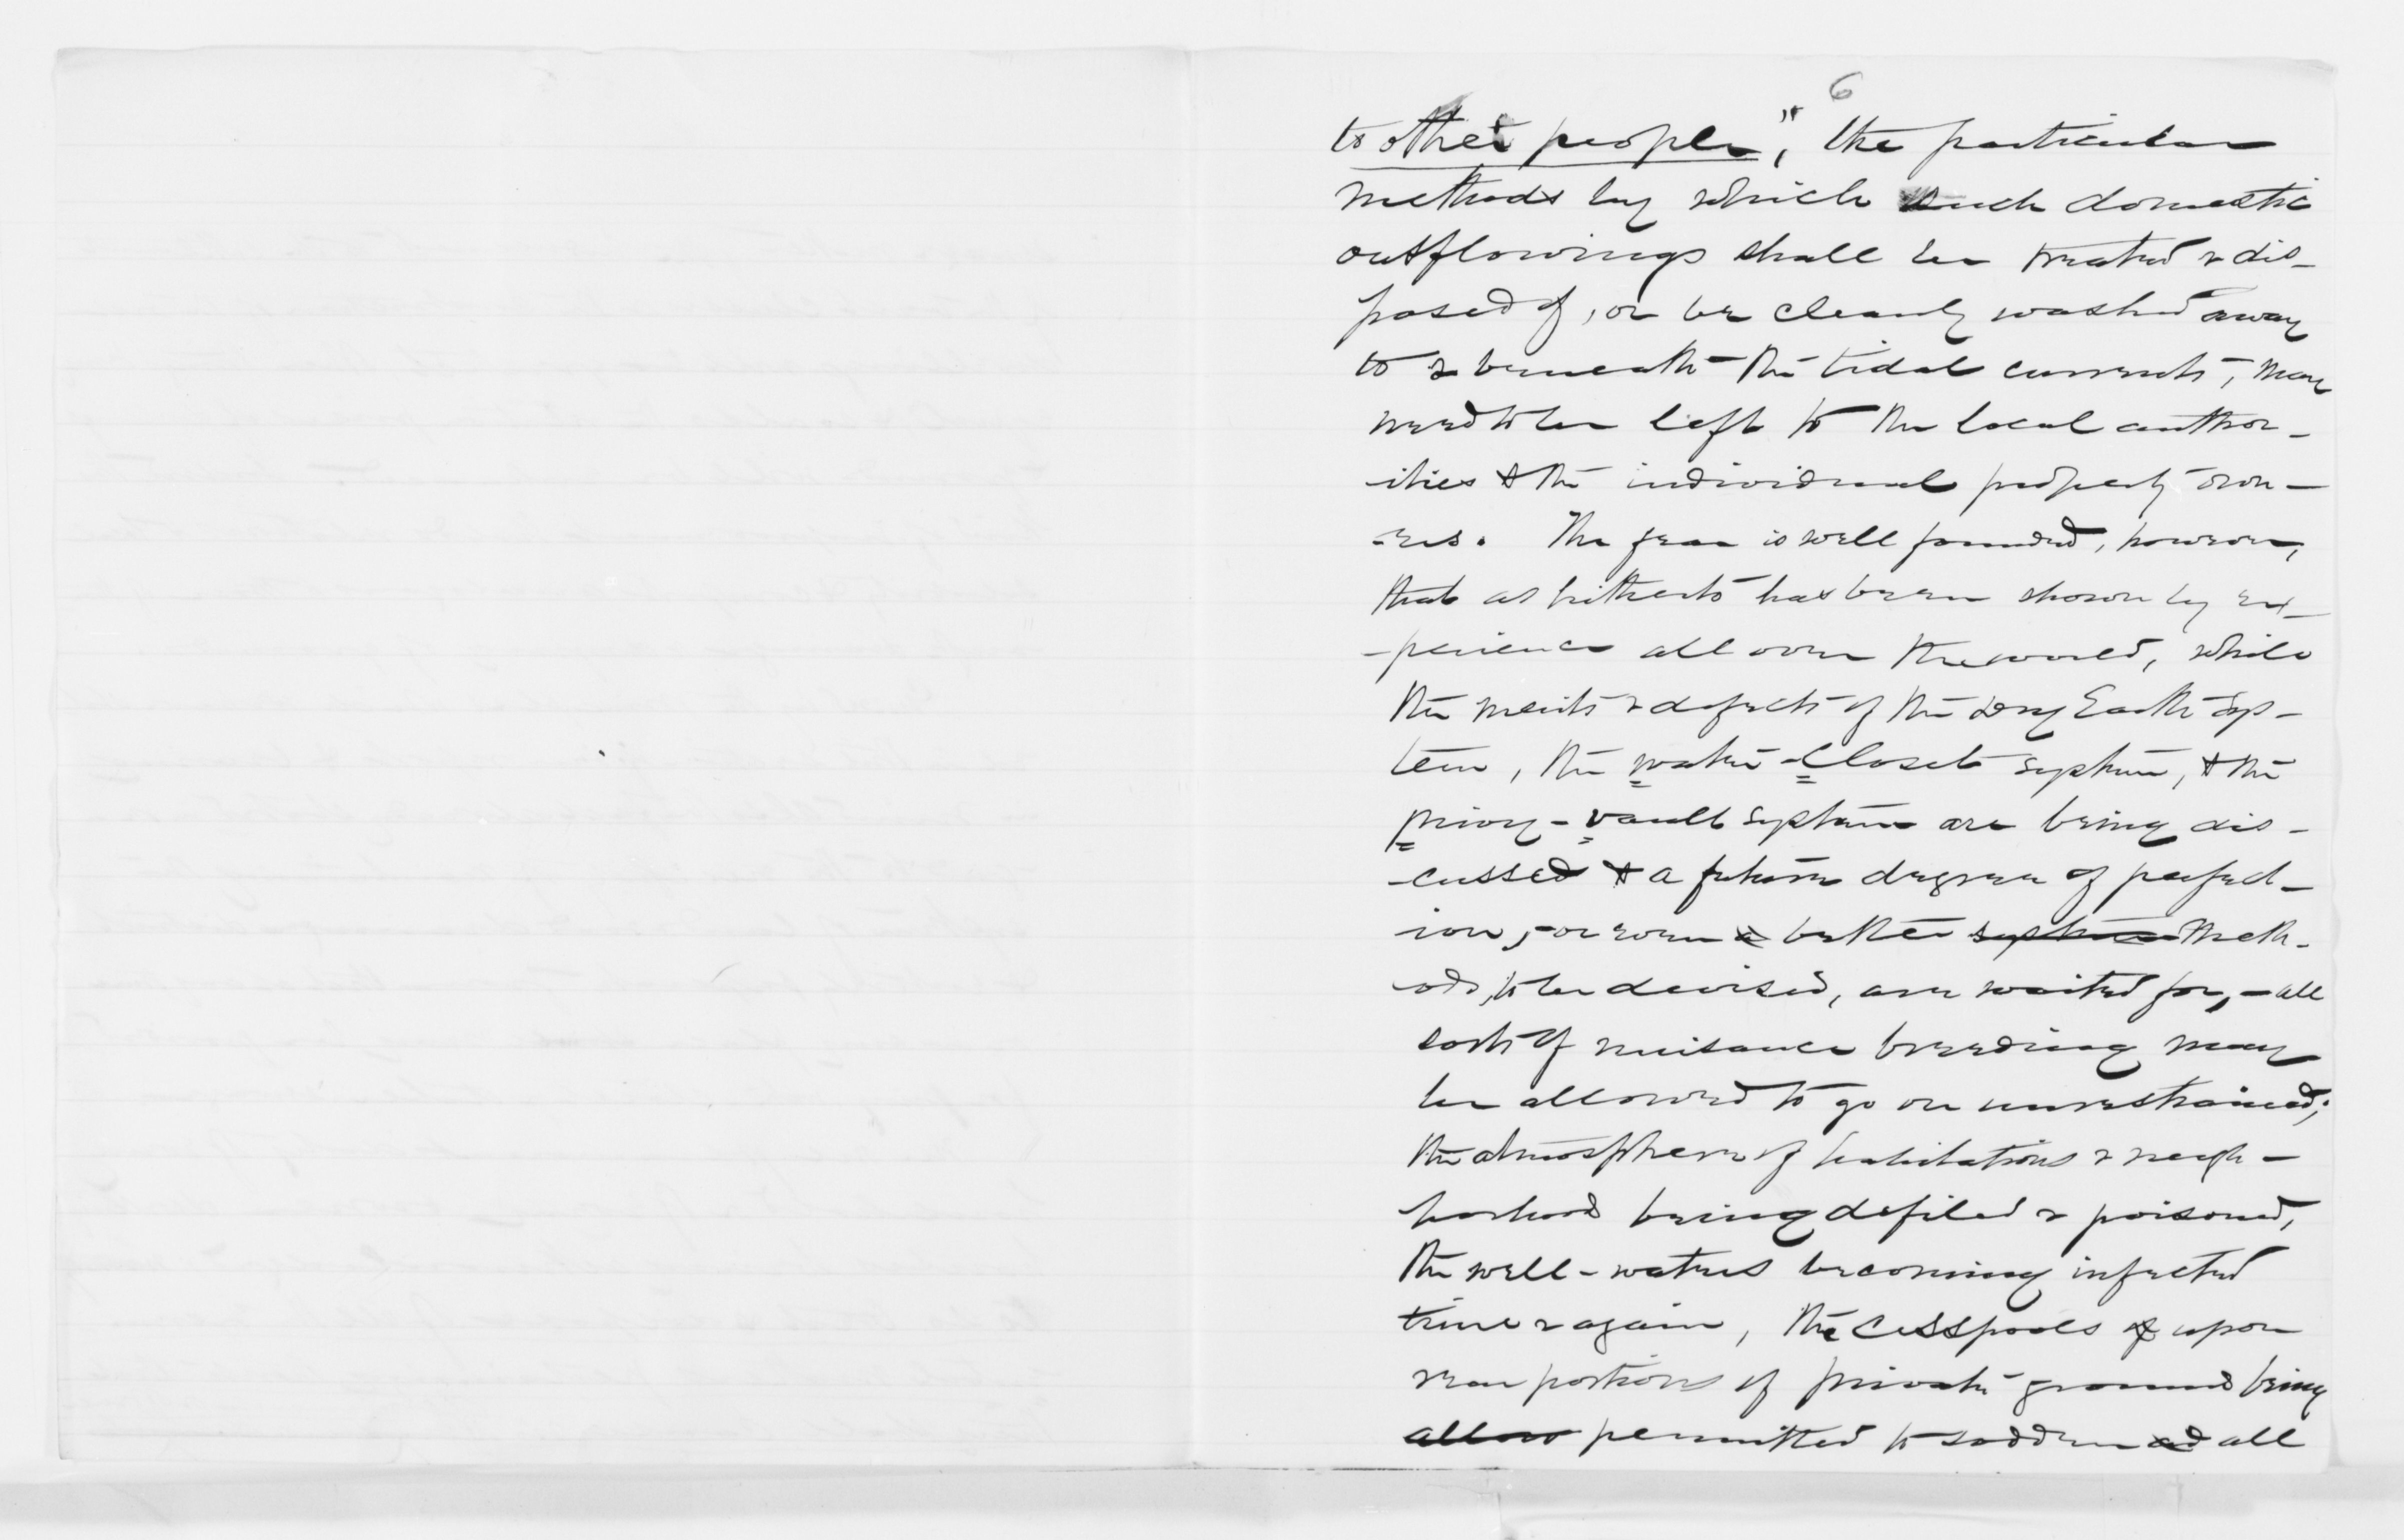 6
to other people," the particular
methods by which such domestic
outflowings shall be treated & dis-
posed of, or be cleanly washed away
to & beneath the tidal currents, may
need to be left to the local author-
-ities & the individual property own-
-ers. The fear is well founded, however,
that as hitherto has been shown by ex-
-perience all over the world, while
the merits & defects of the Dry Earth Sys-
tem, the water-Closet system, & the
privy-vault system are being dis-
-cussed & a future degree of perfect-
ion, or even a better system meth-
-ods, to be devised, are waited for, - all
sorts of nuisance breeding may
be allowed to go on unrestrained;
the atmosphere of habitations & neigh-
borhood being defiled & poisoned,
the well-waters becoming infected
time & again, the cesspools of upon
rear portions of private ground being
allow permitted to sodden and all